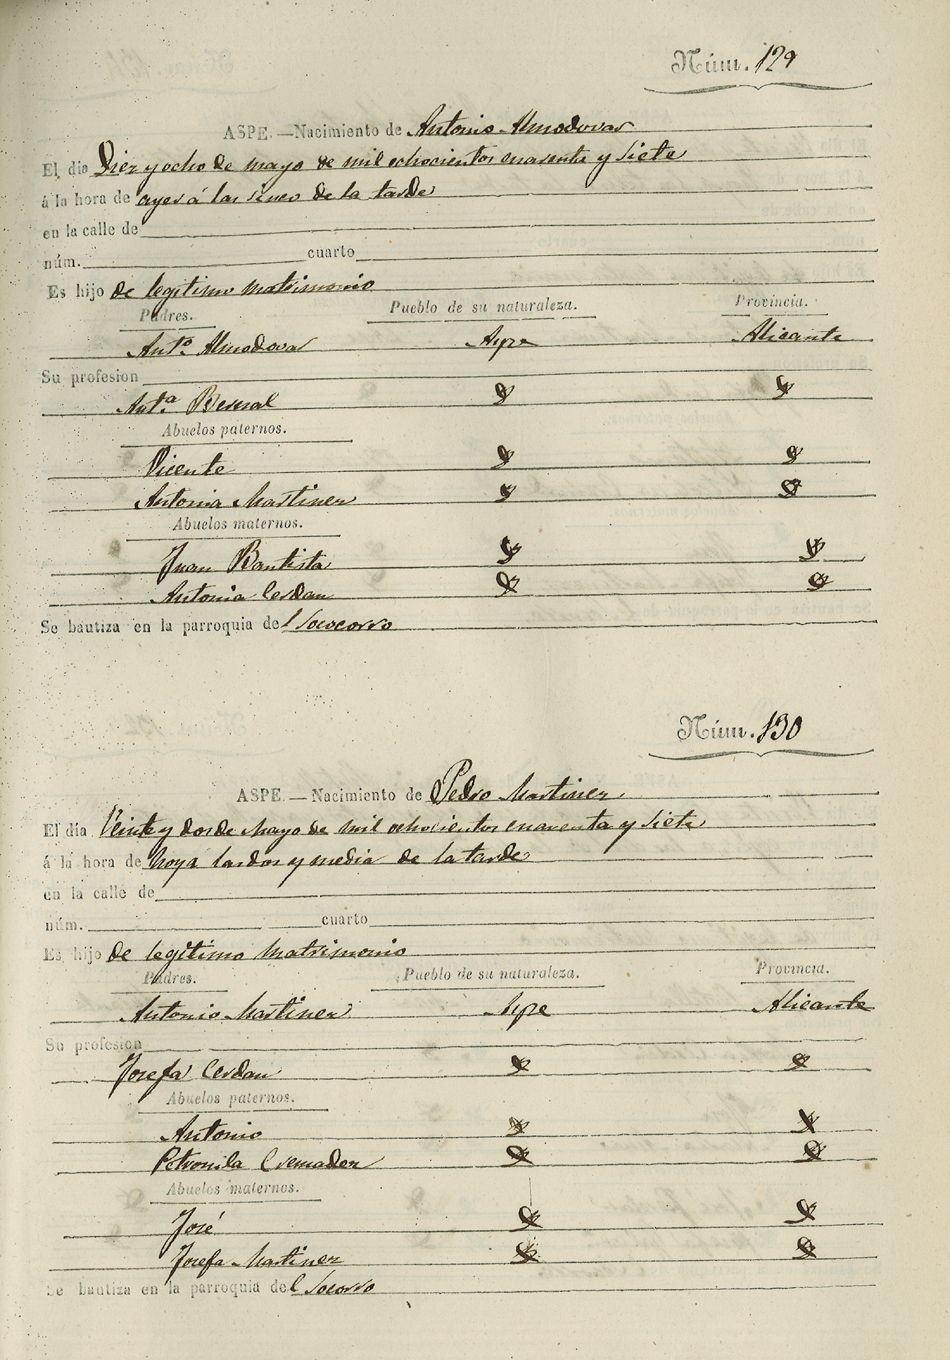 Núm. 129
ASPE.—Nacimiento de Antonio Almodovar
El dia Diez y ocho de mayo de mil ochocientos cuarenta y siete
á la hora de ayer á las sinco de la tarde
en la calle de
núm. cuarto
Es hijo de legitimo matrimonio
Padres. Pueblo de su naturaleza. Provincia.
Antº Almodovar Aspe Alicante
Su profesion
Antª Bernal
Abuelos paternos.
Vicente
Antonia Martinez
Abuelos maternos.
Juan Bautista
Antonia Cerdan
Se bautiza en la parroquia del Sococorro
Núm. 130
ASPE.—Nacimiento de Pedro Martinez
El dia Veinte y dos de Mayo de mil ochocientos cuarenta y siete
á la hora de hoy á las dos y media de la tarde
en la calle de
núm. cuarto
Es hijo de legitimo matrimonio
Padres. Pueblo de su naturaleza. Provincia.
Antonio Martinez Aspe Alicante
Su profesion
Josefa Cerdan
Abuelos paternos.
Antonio
Petronila Cremades
Abuelos maternos.
José
Josefa Martinez
Se bautiza en la parroquia del Socorro